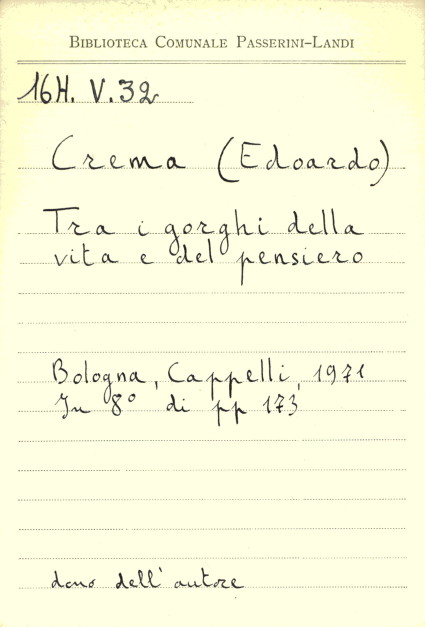 BIBLIOTECA COMUNALE PASSERINI-LANDI
16H. V. 32
Crema (Edoardo)
Tra i gorghi della
vita e del pensiero
Bologna, Cappelli, 1971
In 8° di pp 173
dono dell'autore